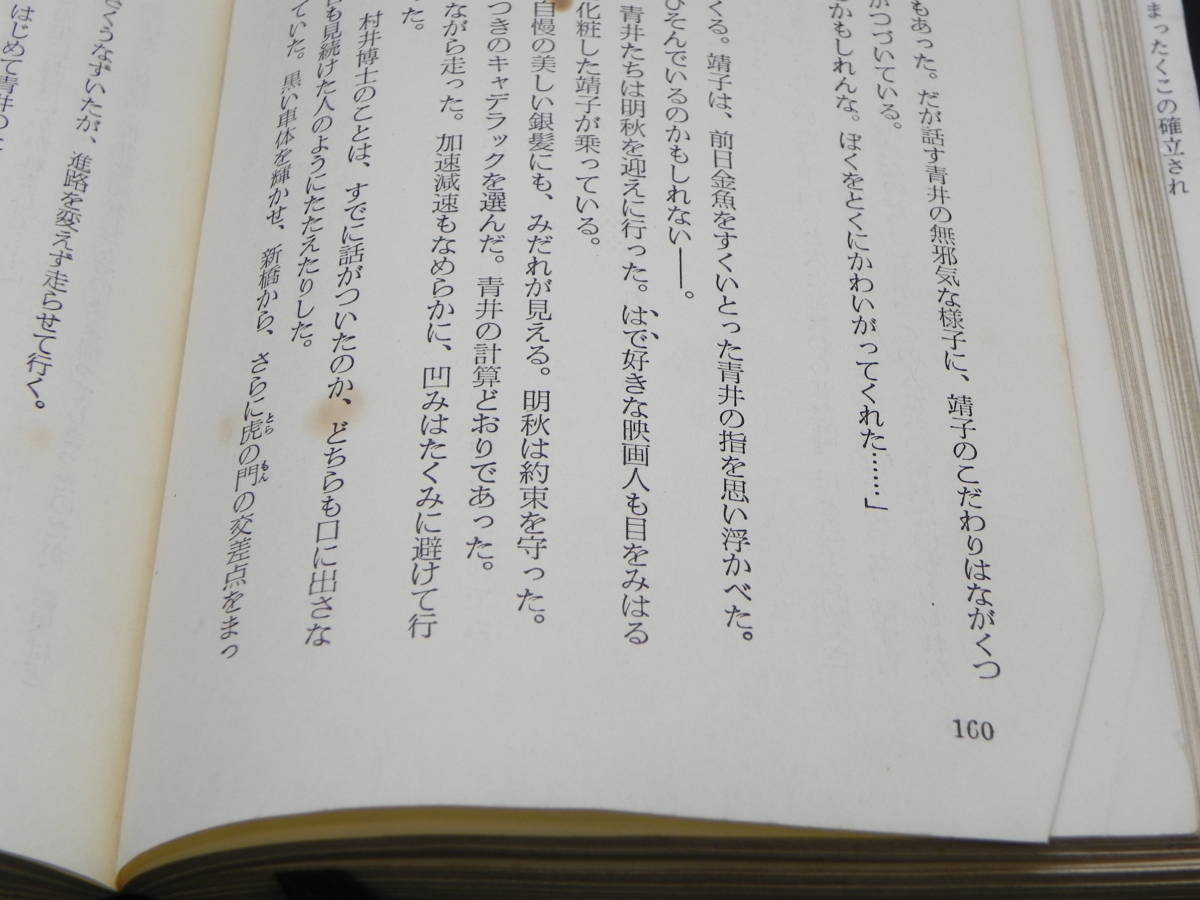 まったくこの確立され
もあった。だが話す青井の無邪気な様子に、靖子のこだわりはながくつ
がつづいている。
かもしれんな。ぼくをとくにかわいがってくれた……」
くる。靖子は、前日金魚をすくいとった青井の指を思い浮かべた。
ひそんでいるのかもしれない――。
青井たちは明秋を迎えに行った。はで好きな映画人も目をみはる
化粧した靖子が乗っている。
自慢の美しい銀髪にも、みだれが見える。明秋は約束を守った。
つきのキャデラックを選んだ。青井の計算どおりであった。
ながら走った。加速減速もなめらかに、凹みはたくみに避けて行
た。
村井博士のことは、すでに話がついたのか、どちらも口に出さな
も見続けた人のようにたたえたりした。
ていた。黒い車体を輝かせ、新橋から、さらに虎の門の交差点をまっ
とら
もん
160
さくうなずいたが、進路を変えず走らせて行く。
はじめて青井の